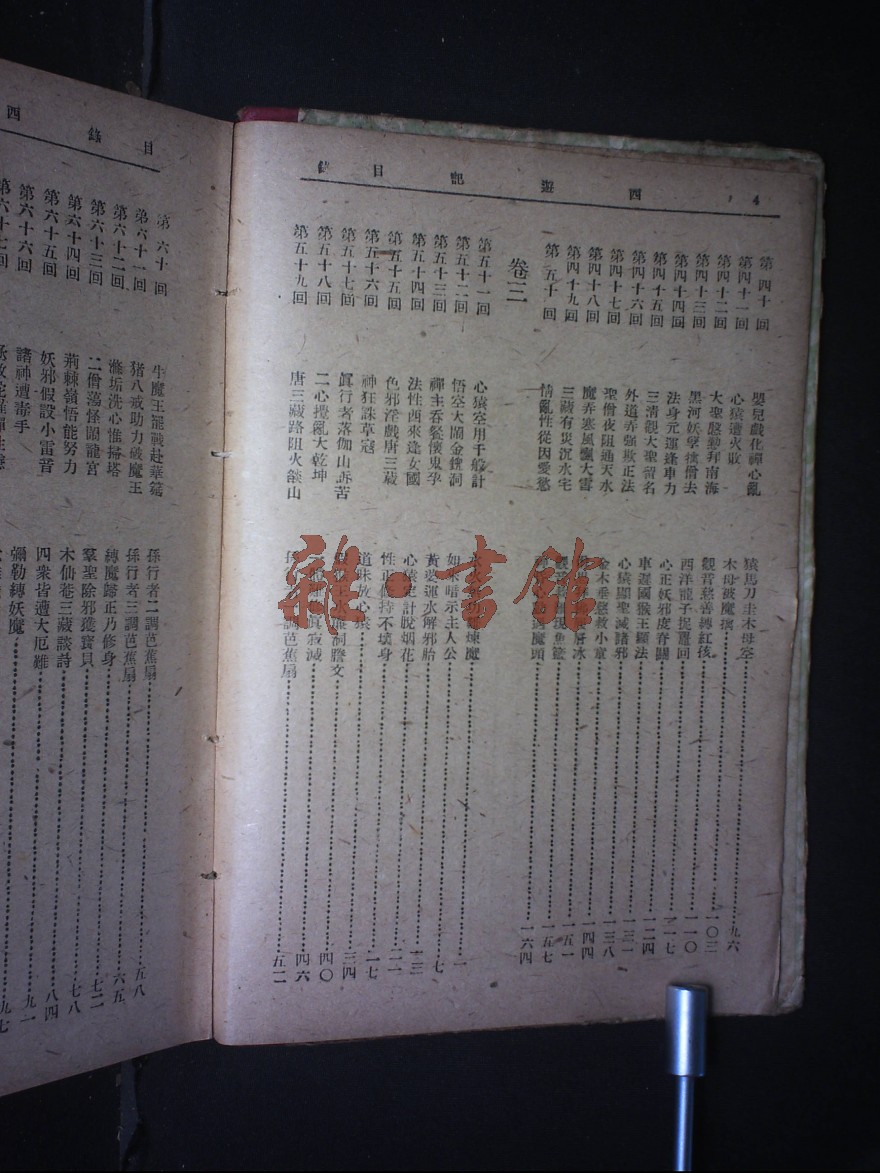 4 西遊記目錄
第四十回 嬰兒戲化禪心亂 猿馬刀圭木母空 九六
第四十一回 心猿遭火敗 木母被魔擒 一〇三
第四十二回 大聖慇懃拜南海 觀音慈善縛紅孩
第四十三回 黑河妖孽擒僧去 西洋龍子捉鼉回 一一〇
第四十四回 法身元運逢車力 心正妖邪度脊關 一一七
第四十五回 三清觀大聖留名 車遲國猴王顯法 一二四
第四十六回 外道弄強欺正法 心猿顯聖滅諸邪 一三一
第四十七回 聖僧夜阻通天水 金木垂慈救小童 一三八
第四十八回 魔弄寒風飄大雪 層冰 一四四
第四十九回 三藏有災沉水宅 魚籃 一五一
第五十回 情亂性從因愛慾 魔頭 一五七
一六四
卷三
第五十一回 心猿空用千般計 煉魔 一
第五十二回 悟空大鬧金𠒎洞 如來暗示主人公 七
第五十三回 禪主吞餐懷鬼孕 黃婆運水解邪胎 一三
第五十四回 法性西來逢女國 心猿定計脫烟花 二一
第五十五回 色邪淫戲唐三藏 性正修持不壞身 二七
第五十六回 神狂誅草寇 道昧放心猿 三四
第五十七回 眞行者落伽山訴苦 洞謄文 四〇
第五十八回 二心攪亂大乾坤 眞寂滅 四六
第五十九回 唐三藏路阻火燄山 調芭蕉扇 五二
目錄 西
第六十回 牛魔王罷戰赴華筵 孫行者二調芭蕉扇 五八
第六十一回 猪八戒助力破魔王 孫行者三調芭蕉扇 六五
第六十二回 滌垢洗心惟掃塔 縛魔歸正乃修身 七二
第六十三回 二僧蕩怪鬧龍宮 羣聖除邪獲寶貝 七八
第六十四回 荊棘嶺悟能努力 木仙菴三藏談詩 八四
第六十五回 妖邪假設小雷音 四衆皆遭大厄難 九一
第六十六回 諸神遭毒手 彌勒縛妖魔 九七
第六十七回
雜·書館